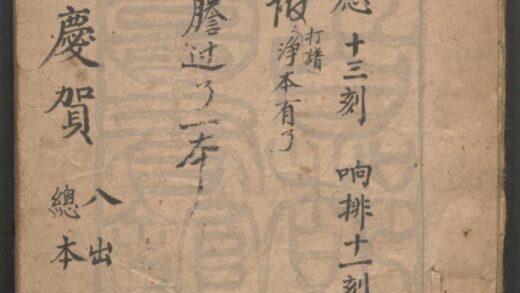 十三刻 响排十一刻
打譜
浄本有了
謄过了一本
慶賀
八出
總本